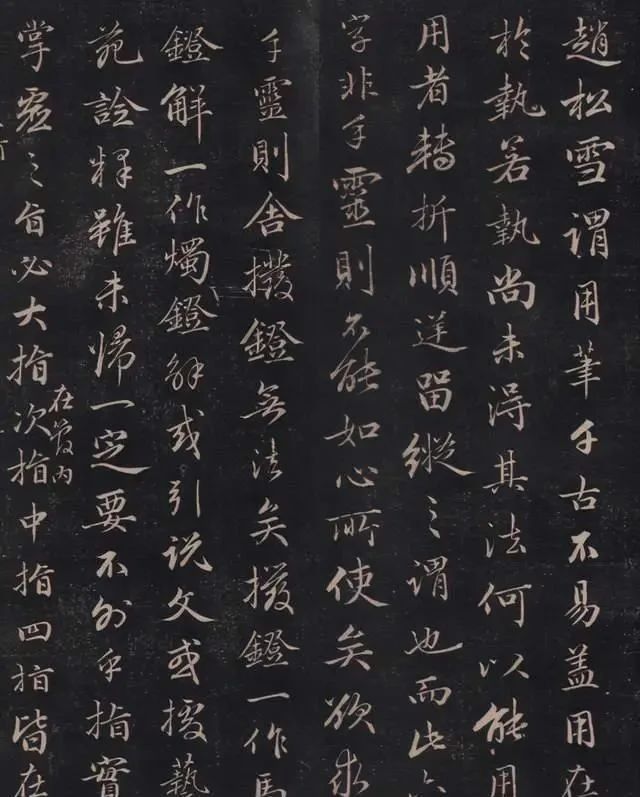 趙松雪謂用筆千古不易蓋用在
於執若執尚未得其法何以能用
用者轉折順逆留縱之謂也而此
字非手靈則不能如心所使矣欲求
手靈則舍撥鐙無法矣撥鐙一作馬
鐙解一作燭鐙解或引説文或援藝
苑詮釋雖未歸一定要不外乎指實
掌虛之旨必大指次指中指四指皆在
在管内